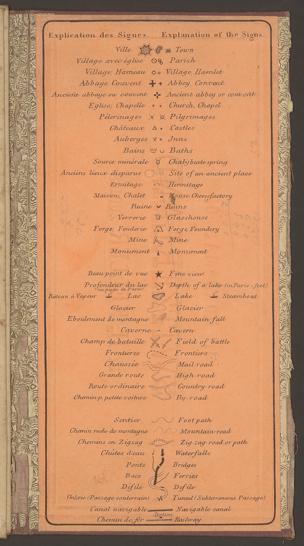 Explication des Signes. Explanation of the Signs.
Ville Town
Village avec église Parish
Village Hameau Village Hamlet
Abbaye Couvent Abbey Convent
Ancienne abbaye ou couvent Ancient abbey or convent
Eglise, Chapelle Church, Chapel
Pélerinages Pilgrimages
Châteaux Castles
Auberges Inns
Bains Baths
Source minérale Chalybeate spring
Anciens lieux disparus Site of an ancient place
Ermitage Hermitage
Maison, Chalet House Cheesefactory
Ruine Ruins
Verrerie Glasshouse
Forge Fonderie Forge Foundery
Mine Mine
Monument Monument
Beau point de vue Fine view
Profondeur du lac Depth of a lake (in Paris-feet)
Bateau à Vapeur Lac Lake Steamboat
Glacier Glacier
Eboulement de montagne Mountain fall
Caverne Cavern
Champ de bataille Field of battle
Frontières Frontiers
Chaussée Mail road
Grande route High-road
Route ordinaire Country-road
Chemin p. petite voiture By-road
Sentier Foot path
Chemin rude de montagne Mountain-road
Chemins en Zigzag Zig-zag road or path
Chûtes d'eau Waterfalls
Ponts Bridges
Bacs Ferries
Défilé Defile
(Passage souterrain) Tunnel (Subterranean Passage)
Canal navigable Navigable canal
Station
Chemin de fer Railway